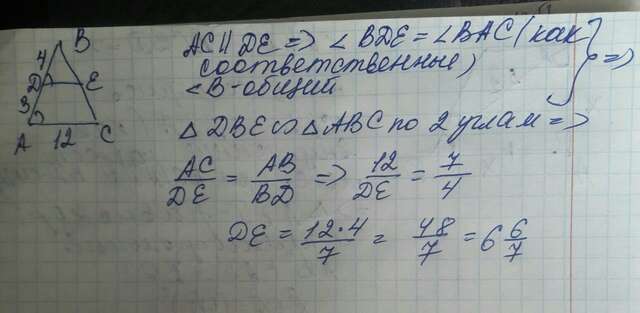 B
4
D
E
3
A
12
C
AC || DE => ∠ BDE = ∠ BAC ( как
соответственные )
∠ B - общий
} =>
△ DBE ∽ △ ABC по 2 углам =>
AC/DE = AB/BD => 12/DE = 7/4
DE = 12·4/7 = 48/7 = 6 6/7